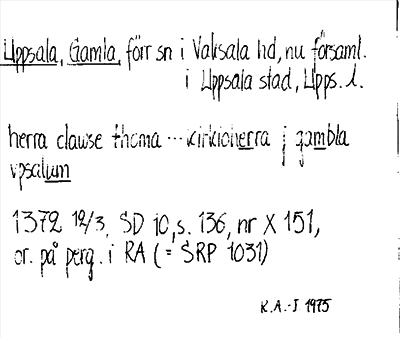 Uppsala, Gamla, förr sn i Vaksala hd, nu församl.
i Uppsala stad, Upps. l.
herra clawse thoma --- kirkioherra j gambla
vpsalum
1372 12/3, SD 10, s. 136, nr X 151,
or. på perg. i RA (= SRP 1031)
K.A.-J 1975